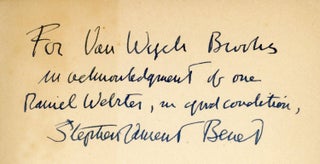 For Van Wyck Brooks
in acknowledgment of one
Daniel Webster, in good condition,
Stephen Vincent Benét